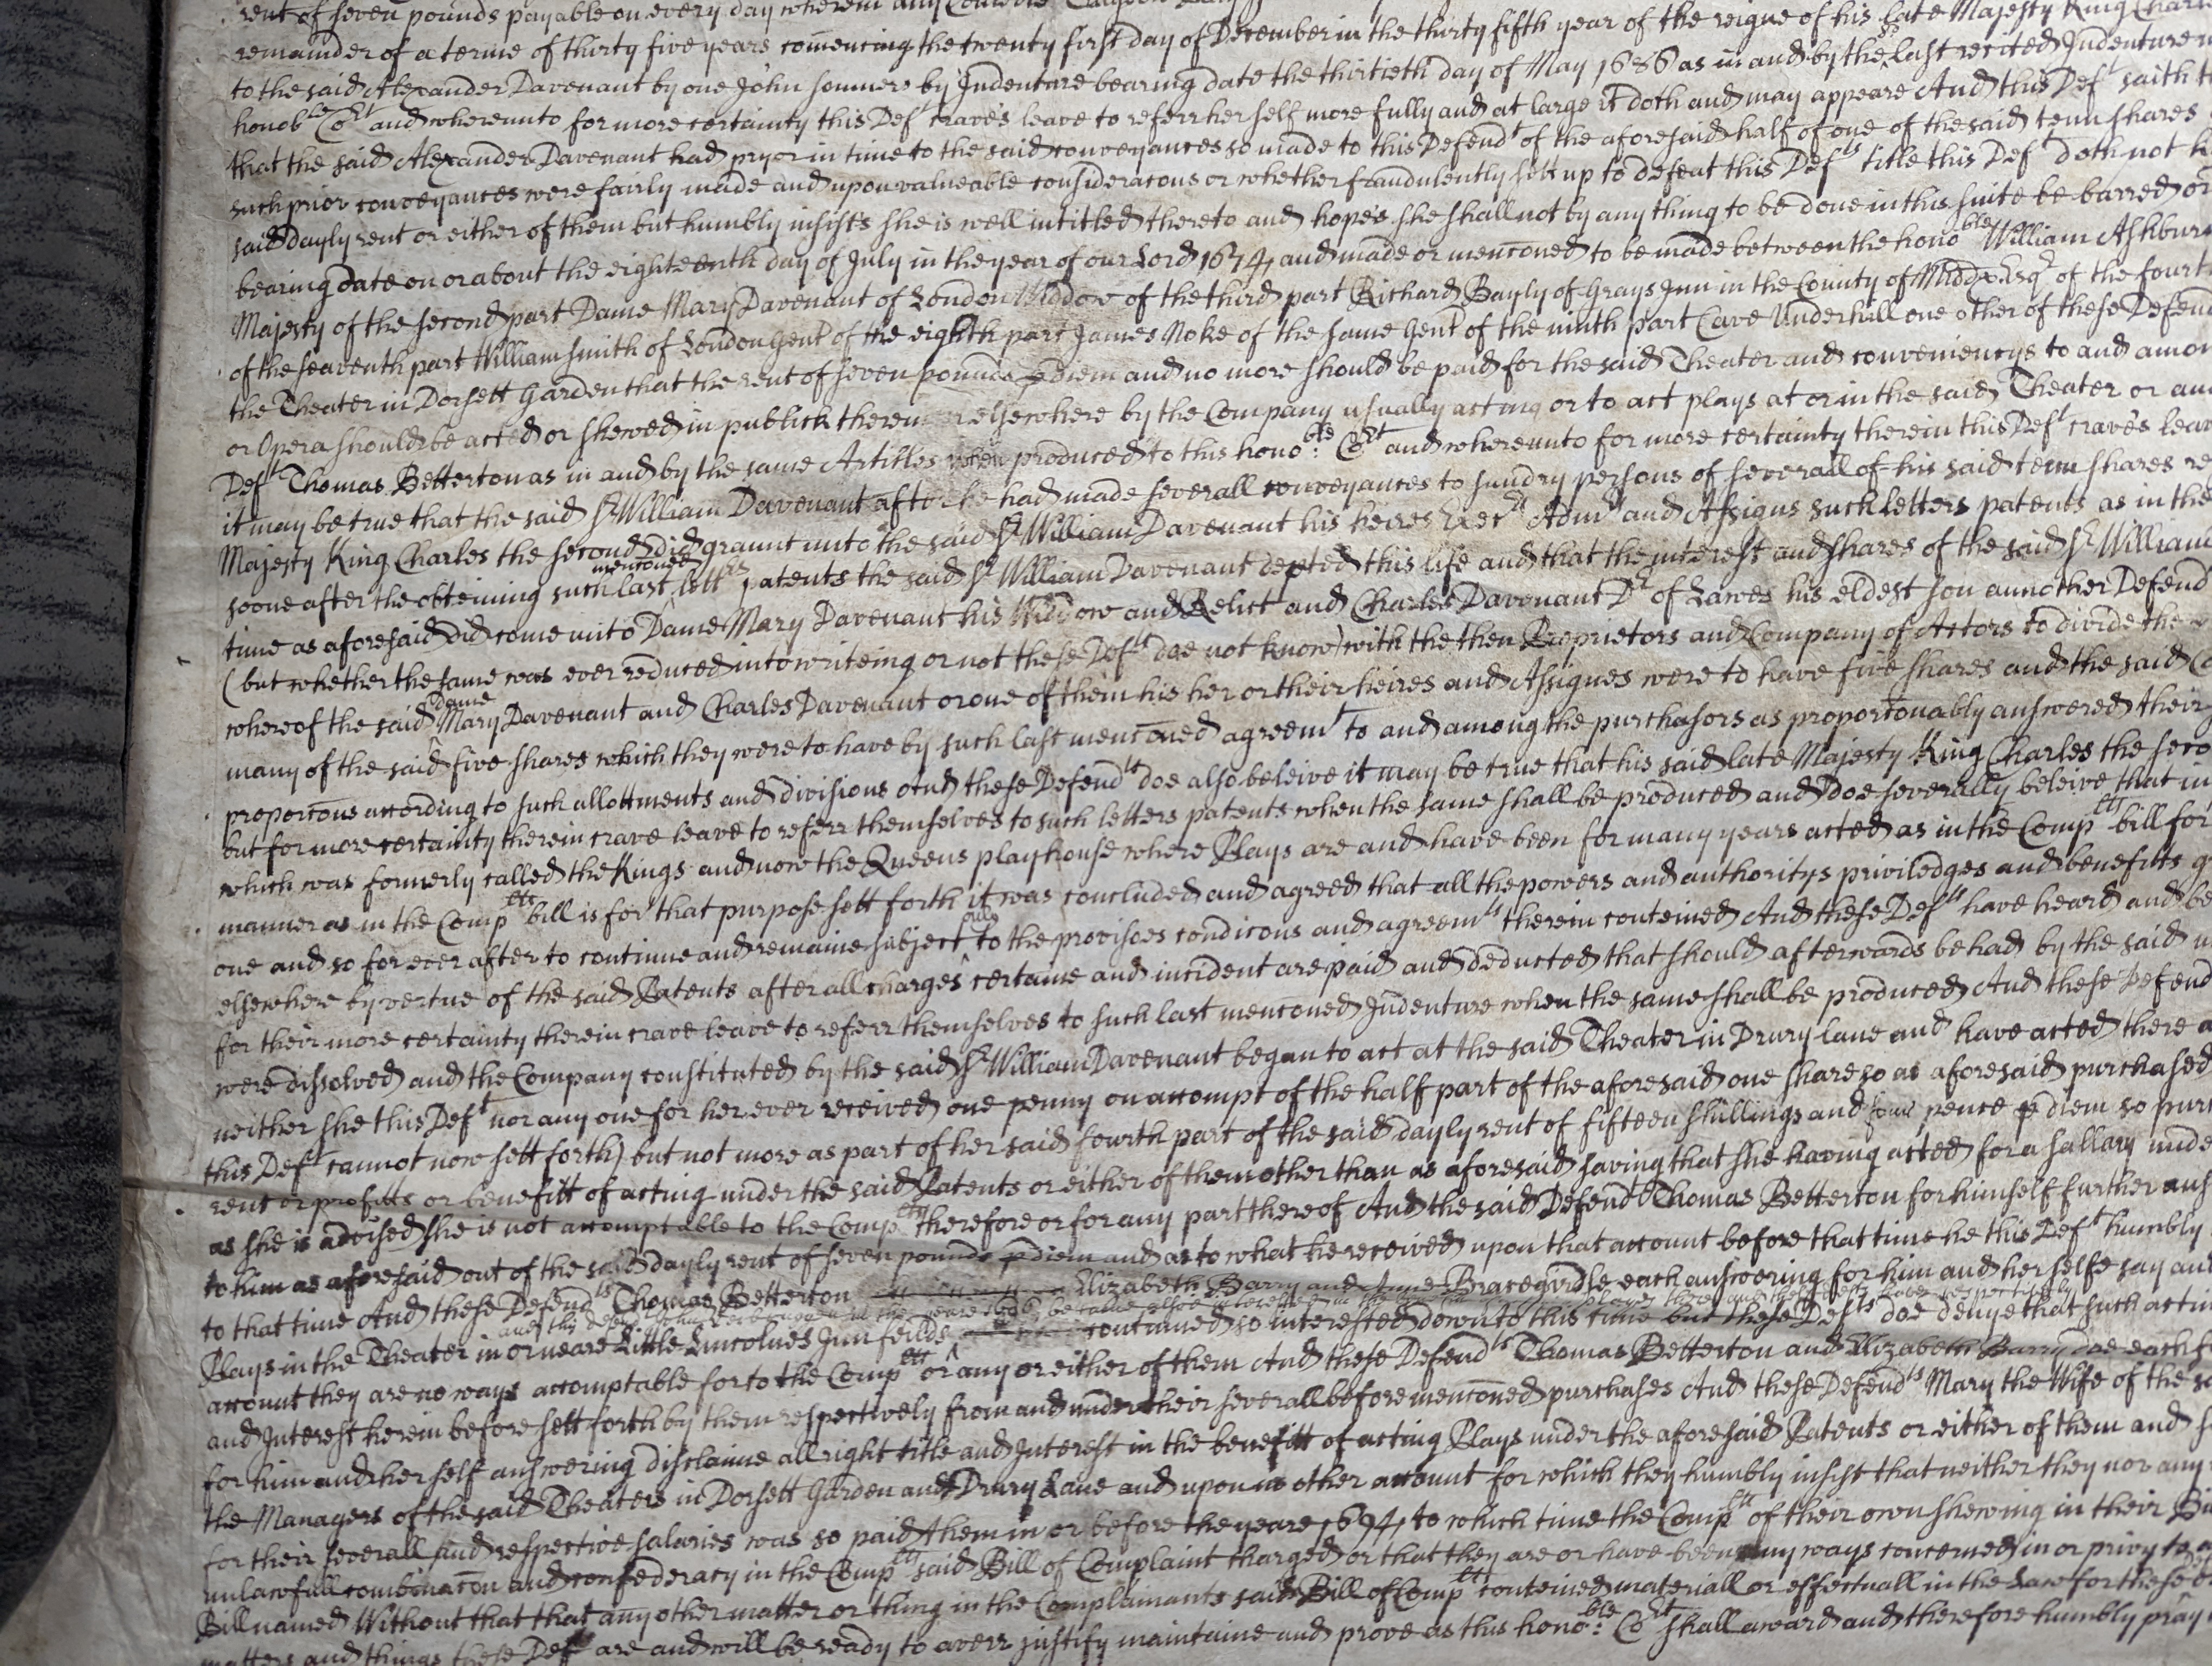 rent of seven pounds payable on every day wherein any
remainder of a terme of thirty five years comencing the twenty first day of December in the thirty fifth year of the reigne of his late Majesty King Charl
to the said Alexander Davenant by one John Somner by Indenture bearing date the thirtieth day of May 1686 as in and by the last recited Indenture
honoble Cort and whereunto for more certainty this Deft crave's leave to referr her self more fully and at large it doth and may appeare And this Deft saith t
that the said Alexander Davenant had pryor in time to the said conveyances so made to this Defendt of the aforesaid half of one of the said tenn shares
such prior conveyances were fairly made and upon valueable consideracons or whether fraudulently sett up to defeat this Defts title this Deft doth not k
said dayly rent or either of them but humbly insists she is well intitled thereto and hopes she shall not by any thing to be done in this suite be barred or
bearing date on or about the eighteenth day of July in the year of our Lord 1674 and made or menconed to be made between the honoble William Ashbur
Majesty of the second part Dame Mary Davenant of London Widdow of the third part Richard Bayly of Grays Inn in the County of Middx Esqr of the fourt
of the seaventh part William Smith of London Gent of the eighth part James Noke of the same Gent of the ninth part Cave Underhill one other of these Defend
the Theater in Dorsett Garden that the rent of seven pounds p diem and no more should be paid for the said Theater and conveniencys to and amon
or Opera should be acted or shewed in publick therein or elsewhere by the Company usually acting or to act plays at or in the said Theater or an
Deft Thomas Betterton as in and by the same Articles when produced to this honoble: Cort and whereunto for more certainty therein this Deft craves leav
it may be true that the said Sr William Davenant after he had made severall conveyances to sundry persons of severall of his said tenn shares re
Majesty King Charles the second did graunt unto the said Sr William Davenant his heires Exers Admrs and Assigns such letters patents as in the
soone after the obteining such last menconed lettrs patents the said Sr William Davenant depted this life and that the interest and shares of the said Sr William
time as aforesaid did come unto Dame Mary Davenant his Widdow and Relict and Charles Davenant Dr of Lawes his eldest son annother Defend
(but whether the same was ever reduced into writeing or not these Defts doe not know) with the then Proprietors and Company of Actors to divide the
whereof the said dame Mary Davenant and Charles Davenant or one of them his her or their heires and Assignes were to have five shares and the said
many of the said five shares which they were to have by such last menconed agreemt to and among the purchasors as proporconably answered their
proporcons according to such allottments and divisions And these Defendts doe also beleive it may be true that his said late Majesty King Charles the seco
but for more certainty therein crave leave to referr themselves to such letters patents when the same shall be produced and doe severally beleive that in
which was formerly called the Kings and now the Queens playhouse where Plays are and have been for many years acted as in the Complts bill for
manner as in the Complts bill is for that purpose sett forth it was concluded and agreed that all the powers and authoritys priviledges and benefitts g
one and so for ever after to continue and remaine subject only to the provisoes condicons and agreemts therein conteined And these Defts have heard and be
elsewhere by vertue of the said Patents after all charges certaine and incident are paid and deducted that should afterwards be had by the said
for their more certainty therein crave leave to referr themselves to such last menconed Indenture when the same shall be produced And these Defend
were dissolved and the Company constituted by the said Sr William Davenant began to act at the said Theater in Drury lane and have acted there a
neither she this Deft nor any one for her ever received one penny on accompt of the half part of the aforesaid one share so as aforesaid purchased
this Deft cannot now sett forth) but not more as part of her said fourth part of the said dayly rent of fifteen shillings and four pence p diem so pur
rent or profitts or benefitt of acting under the said Patents or either of them other than as aforesaid saving that she having acted for a sallary unde
as she is advised she is not accomptable to the Complts therefore or for any part thereof And the said Defendt Thomas Betterton for himself further ans
to him as aforesaid out of the said dayly rent of seven pounds p diem and as to what he received upon that account before that time he this Deft humbly
to that time And these Defendts Thomas Betterton Elizabeth Barry and Anne Bracegirdle each answering for him and her selfe say and
Plays in the Theater in or neare Little Lincolnes Inn feilds continued so interested down to this time but these Defts doe denye that such actin
account they are no ways accomptable for to the Complts or any or either of them And these Defendts Thomas Betterton and Elizabeth Barry doe each f
and Interest herein before sett forth by them respectively from and under their severall before menconed purchases And these Defendts Mary the Wife of the s
for him and her self answering disclaime all right title and Interest in the benefitt of acting Plays under the aforesaid Patents or either of them and
the Managers of the said Theaters in Dorsett Garden and Drury Lane and upon no other account for which they humbly insist that neither they nor any
for their severall and respective salaries was so paid them in or before the yeare 1694 to which time the Complts of their own shewing in their Bi
unlawfull combinacon and confederacy in the Complts said Bill of Complaint charged or that they are or have been any ways concerned in or privy to a
Bill named Without that that any other matter or thing in the Complainants said Bill of Complts conteined materiall or effectuall in the Law for these
matters and things these Defts are and will be ready to averr justify maintaine and prove as this honoble: Cort shall award and therefore humbly pray